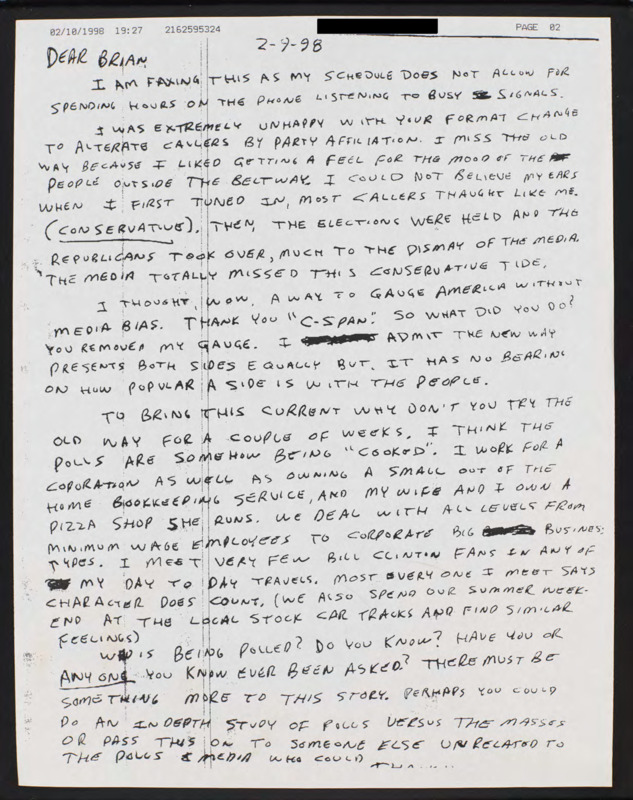 02/10/1998 19:27 2162595324 PAGE 02
2-9-98
DEAR BRIAN
I AM FAXING THIS AS MY SCHEDULE DOES NOT ALLOW FOR
SPENDING HOURS ON THE PHONE LISTENING TO BUSY SIGNALS.
I WAS EXTREMELY UNHAPPY WITH YOUR FORMAT CHANGE
TO ALTERATE CALLERS BY PARTY AFFILIATION. I MISS THE OLD
WAY BECAUSE I LIKED GETTING A FEEL FOR THE MOOD OF THE
PEOPLE OUTSIDE THE BELTWAY. I COULD NOT BELIEVE MY EARS
WHEN I FIRST TUNED IN, MOST CALLERS THAUGHT LIKE ME.
(CONSERVATIVE). THEN, THE ELECTIONS WERE HELD AND THE
REPUBLICANS TOOK OVER, MUCH TO THE DISMAY OF THE MEDIA.
THE MEDIA TOTALLY MISSED THIS CONSERVATIVE TIDE.
I THOUGHT, WOW, A WAY TO GAUGE AMERICA WITHOUT
MEDIA BIAS. THANK YOU "C-SPAN." SO WHAT DID YOU DO?
YOU REMOVED MY GAUGE. I ADMIT THE NEW WAY
PRESENTS BOTH SIDES EQUALLY BUT, IT HAS NO BEARING
ON HOW POPULAR A SIDE IS WITH THE PEOPLE.
TO BRING THIS CURRENT WHY DON'T YOU TRY THE
OLD WAY FOR A COUPLE OF WEEKS. I THINK THE
POLLS ARE SOMEHOW BEING "COOKED". I WORK FOR A
COPORATION AS WELL AS OWNING A SMALL OUT OF THE
HOME BOOKKEEPING SERVICE, AND MY WIFE AND I OWN A
PIZZA SHOP SHE RUNS. WE DEAL WITH ALL LEVELS FROM
MINIMUM WAGE EMPLOYEES TO CORPORATE BIG BUSINES
TYPES. I MEET VERY FEW BILL CLINTON FANS IN ANY OF
MY DAY TO DAY TRAVELS. MOST EVERY ONE I MEET SAYS
CHARACTER DOES COUNT. (WE ALSO SPEND OUR SUMMER WEEK-
END AT THE LOCAL STOCK CAR TRACKS AND FIND SIMILAR
FEELINGS)
WHO IS BEING POLLED? DO YOU KNOW? HAVE YOU OR
ANY ONE YOU KNOW EVER BEEN ASKED? THERE MUST BE
SOMETHING MORE TO THIS STORY. PERHAPS YOU COULD
DO AN INDEPTH STUDY OF POLLS VERSUS THE MASSES
OR PASS THIS ON TO SOMEONE ELSE UNRELATED TO
THE POLLS & MEDIA WHO COULD